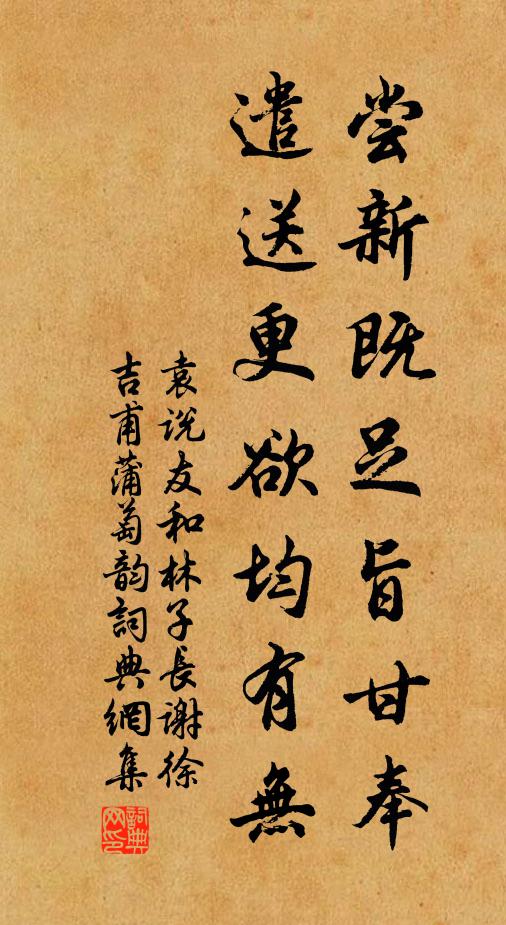 尝新既足旨甘奉
遣送更欲均有無
袁说友和林子長谢徐
吉甫蒲萄韵詞典網集
詞典
网印